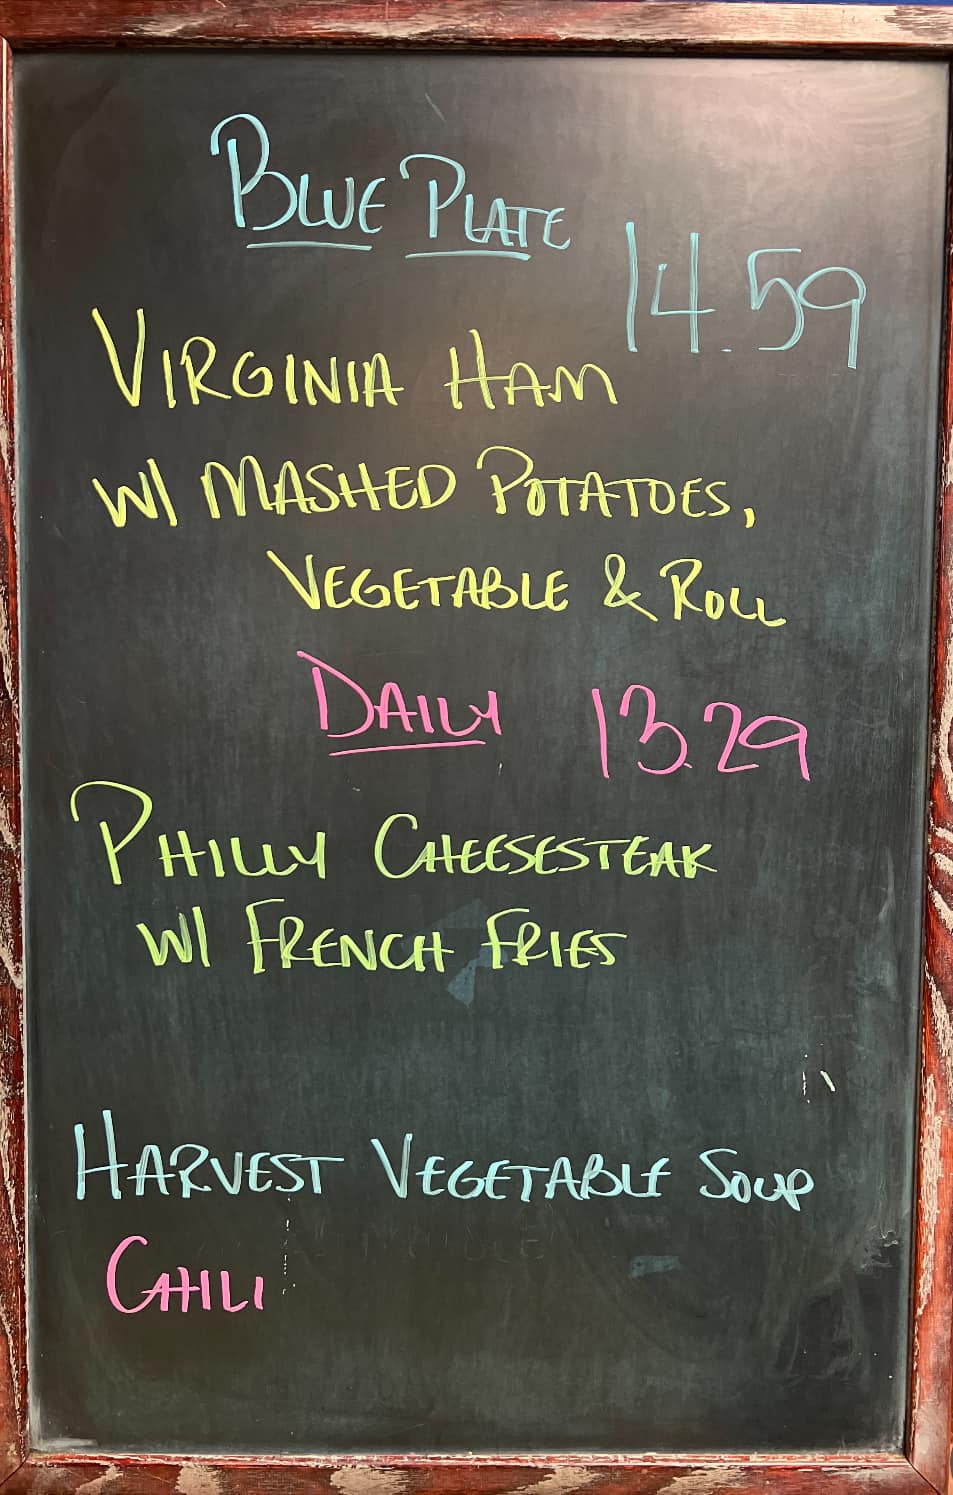 BLUE PLATE 14.59
VIRGINIA HAM
W/ MASHED POTATOES,
VEGETABLE & ROLL
DAILY 13.29
PHILLY CHEESESTEAK
W/ FRENCH FRIES
HARVEST VEGETABLE SOUP
CHILI